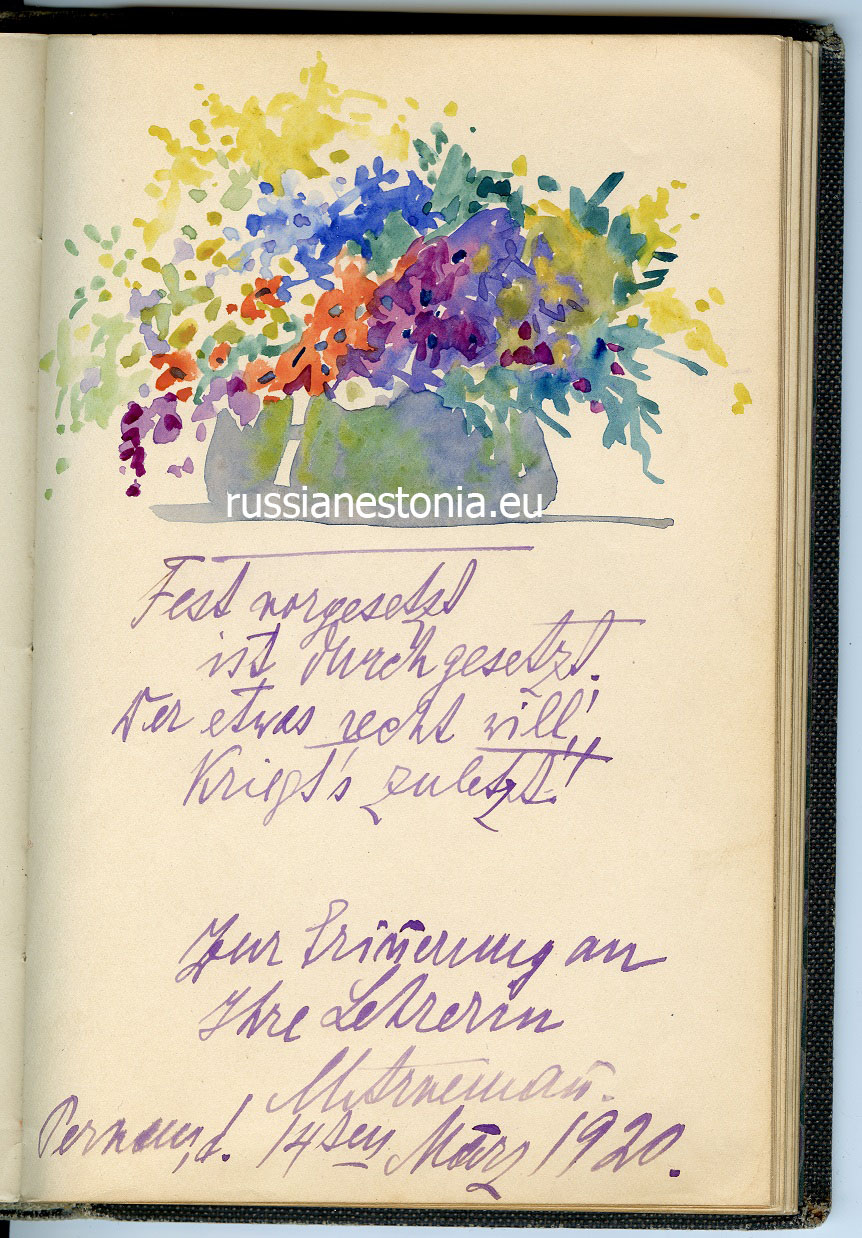 russianestonia.eu
Fest vorgesetzt
ist durchgesetzt.
Der etwas recht will!,
Kriegt's zuletzt!
Zur Erin̄erung an
Ihre Lehrerin
Pernau, d. 14ten März 1920.